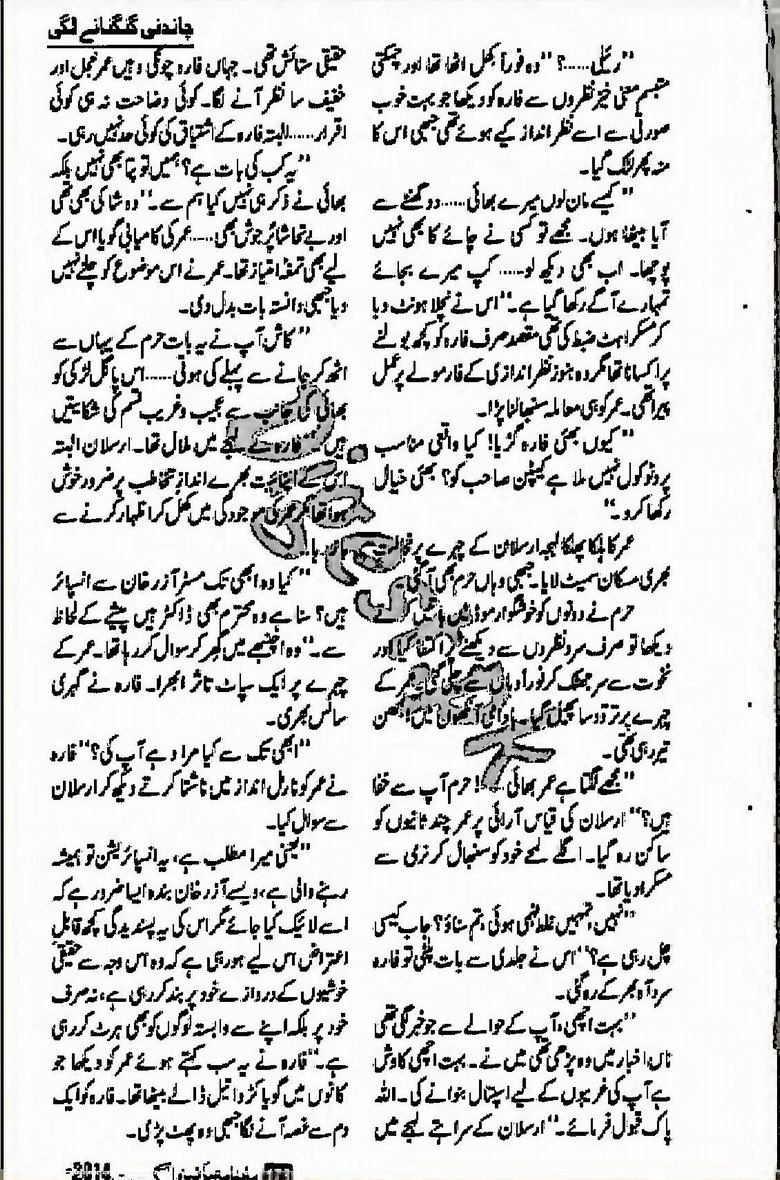 چاندنی گنگنانے لگی
”رئیلی……؟“ وہ فوراً کھل اٹھا تھا اور چمکتی
متبسم معنی خیز نظروں سے فارہ کو دیکھا جو بہت خوب
صورتی سے اسے نظر انداز کیے ہوئے تھی جبھی اس کا
منہ پھر لٹک گیا۔
”کیسے مان لوں میرے بھائی……دو گھنٹے سے
آیا بیٹھا ہوں۔ مجھے تو کسی نے چائے کا بھی نہیں
پوچھا۔ اب بھی دیکھ لو…… کپ میرے بجائے
تمہارے آگے رکھا گیا ہے۔“ اس نے نچلا ہونٹ دبا
کر مسکراہٹ ضبط کی تھی مقصد صرف فارہ کو کچھ بولنے
پر اکسانا تھا مگر وہ ہنوز نظر اندازی کے فارمولے پر عمل
پیرا تھی۔ عمر کو ہی معاملہ سنبھالنا پڑا۔
”کیوں بھئی فارہ گڑیا! کیا واقعی مناسب
پروٹوکول نہیں ملا ہے کیپٹن صاحب کو؟ بھئی خیال
رکھا کرو۔“
عمر کا ہلکا پھلکا لہجہ ارسلان کے چہرے پر
بھری مسکان سمیٹ لایا۔ جبھی وہاں حرم بھی آ گئی۔
حرم نے دونوں کو خوشگوار موڈ میں باتیں کرتے
دیکھا تو صرف سرد نظروں سے دیکھنے پر اکتفا کیا اور
نخوت سے سر جھٹک کر فوراً وہاں سے چلی گئی۔ عمر کے
چہرے پر تردد سا پھیل گیا۔ آنکھوں میں الجھن
تیر رہی تھی۔
”مجھے لگتا ہے عمر بھائی……! حرم آپ سے خفا
ہیں؟“ ارسلان کی قیاس آرائی پر عمر چند ثانیوں کو
ساکن رہ گیا۔ اگلے لمحے خود کو سنبھال کر نرمی سے
مسکرا دیا تھا۔
”نہیں، تمہیں غلط فہمی ہوئی، تم سناؤ؟ جاب کیسی
چل رہی ہے؟“ اس نے جلدی سے بات پلٹی تو فارہ
سرد آہ بھر کے رہ گئی۔
”بہت اچھی، آپ کے حوالے سے جو خبر لگی تھی
ناں اخبار میں وہ پڑھی تھی میں نے۔ بہت اچھی کاوش
ہے آپ کی غریبوں کے لیے اسپتال بنوانے کی۔ اللہ
پاک قبول فرمائے۔“ ارسلان کے سراہتے لہجے میں
حقیقی ستائش تھی۔ جہاں فارہ چونکی وہیں عمر خجل اور
خفیف سا نظر آنے لگا۔ کوئی وضاحت نہ ہی کوئی
اقرار……البتہ فارہ کے اشتیاق کی کوئی حد نہیں رہی۔
”یہ کب کی بات ہے؟ ہمیں تو پتا بھی نہیں بلکہ
بھائی نے ذکر ہی نہیں کیا ہم سے۔“ وہ شاکی بھی تھی
اور بے تحاشا پرجوش بھی……عمر کی کامیابی گویا اس کے
لیے بھی تمغۂ امتیاز تھا۔ عمر نے اس موضوع کو چلنے نہیں
دیا جبھی دانستہ بات بدل دی۔
”کاش آپ نے یہ بات حرم کے یہاں سے
اٹھ کر جانے سے پہلے کی ہوتی……اس پاگل لڑکی کو
بھائی کی جانب سے عجیب و غریب قسم کی شکایتیں
ہیں۔“ فارہ کے لہجے میں ملال تھا۔ ارسلان البتہ
اس کے اپنائیت بھرے انداز تخاطب پر ضرور خوش
ہوا تھا مگر عمر کی موجودگی میں کھل کر اظہار کرنے سے
باز رہا۔
”کیا وہ ابھی تک مسٹر آزر خان سے انسپائر
ہیں؟ سنا ہے وہ محترم بھی ڈاکٹر ہیں پیشے کے لحاظ
سے۔“ وہ اچنبھے میں گھر کر سوال کر رہا تھا۔ عمر کے
چہرے پر ایک سپاٹ تاثر ابھرا۔ فارہ نے گہری
سانس بھری۔
”ابھی تک سے کیا مراد ہے آپ کی؟“ فارہ
نے عمر کو نارمل انداز میں ناشتا کرتے دیکھ کر ارسلان
سے سوال کیا۔
”یعنی میرا مطلب ہے، یہ انسپائریشن تو ہمیشہ
رہنے والی ہے، ویسے آزر خان بندہ ایسا ضرور ہے کہ
اسے لائیک کیا جائے مگر اس کی یہ پسندیدگی کچھ قابل
اعتراض اس لیے ہو رہی ہے کہ وہ اس وجہ سے حقیقی
خوشیوں کے دروازے خود پر بند کر رہی ہے، نہ صرف
خود پر بلکہ اپنے سے وابستہ لوگوں کو بھی ہرٹ کر رہی
ہے۔“ فارہ نے یہ سب کہتے ہوئے عمر کو دیکھا جو
کانوں میں گویا کڑوا تیل ڈالے بیٹھا تھا۔ فارہ کو ایک
دم سے غصہ آنے لگا جبھی وہ پھٹ پڑی۔
2014ء